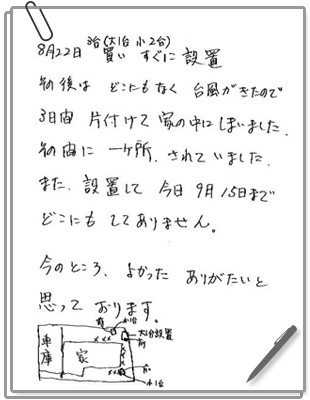 3台(大1台 小2台)
8月22日 買い すぐに 設置
その後は どこにもなく 台風がきたので
3日間 片付けて 家の中にしまいました。
その間に 一ケ所、されていました。
また、設置して 今日 9月15日まで
どこにも してありません。
今のところ、よかった ありがたいと
思って おります。
小1台
大1台設置
前
車庫
家
小1台